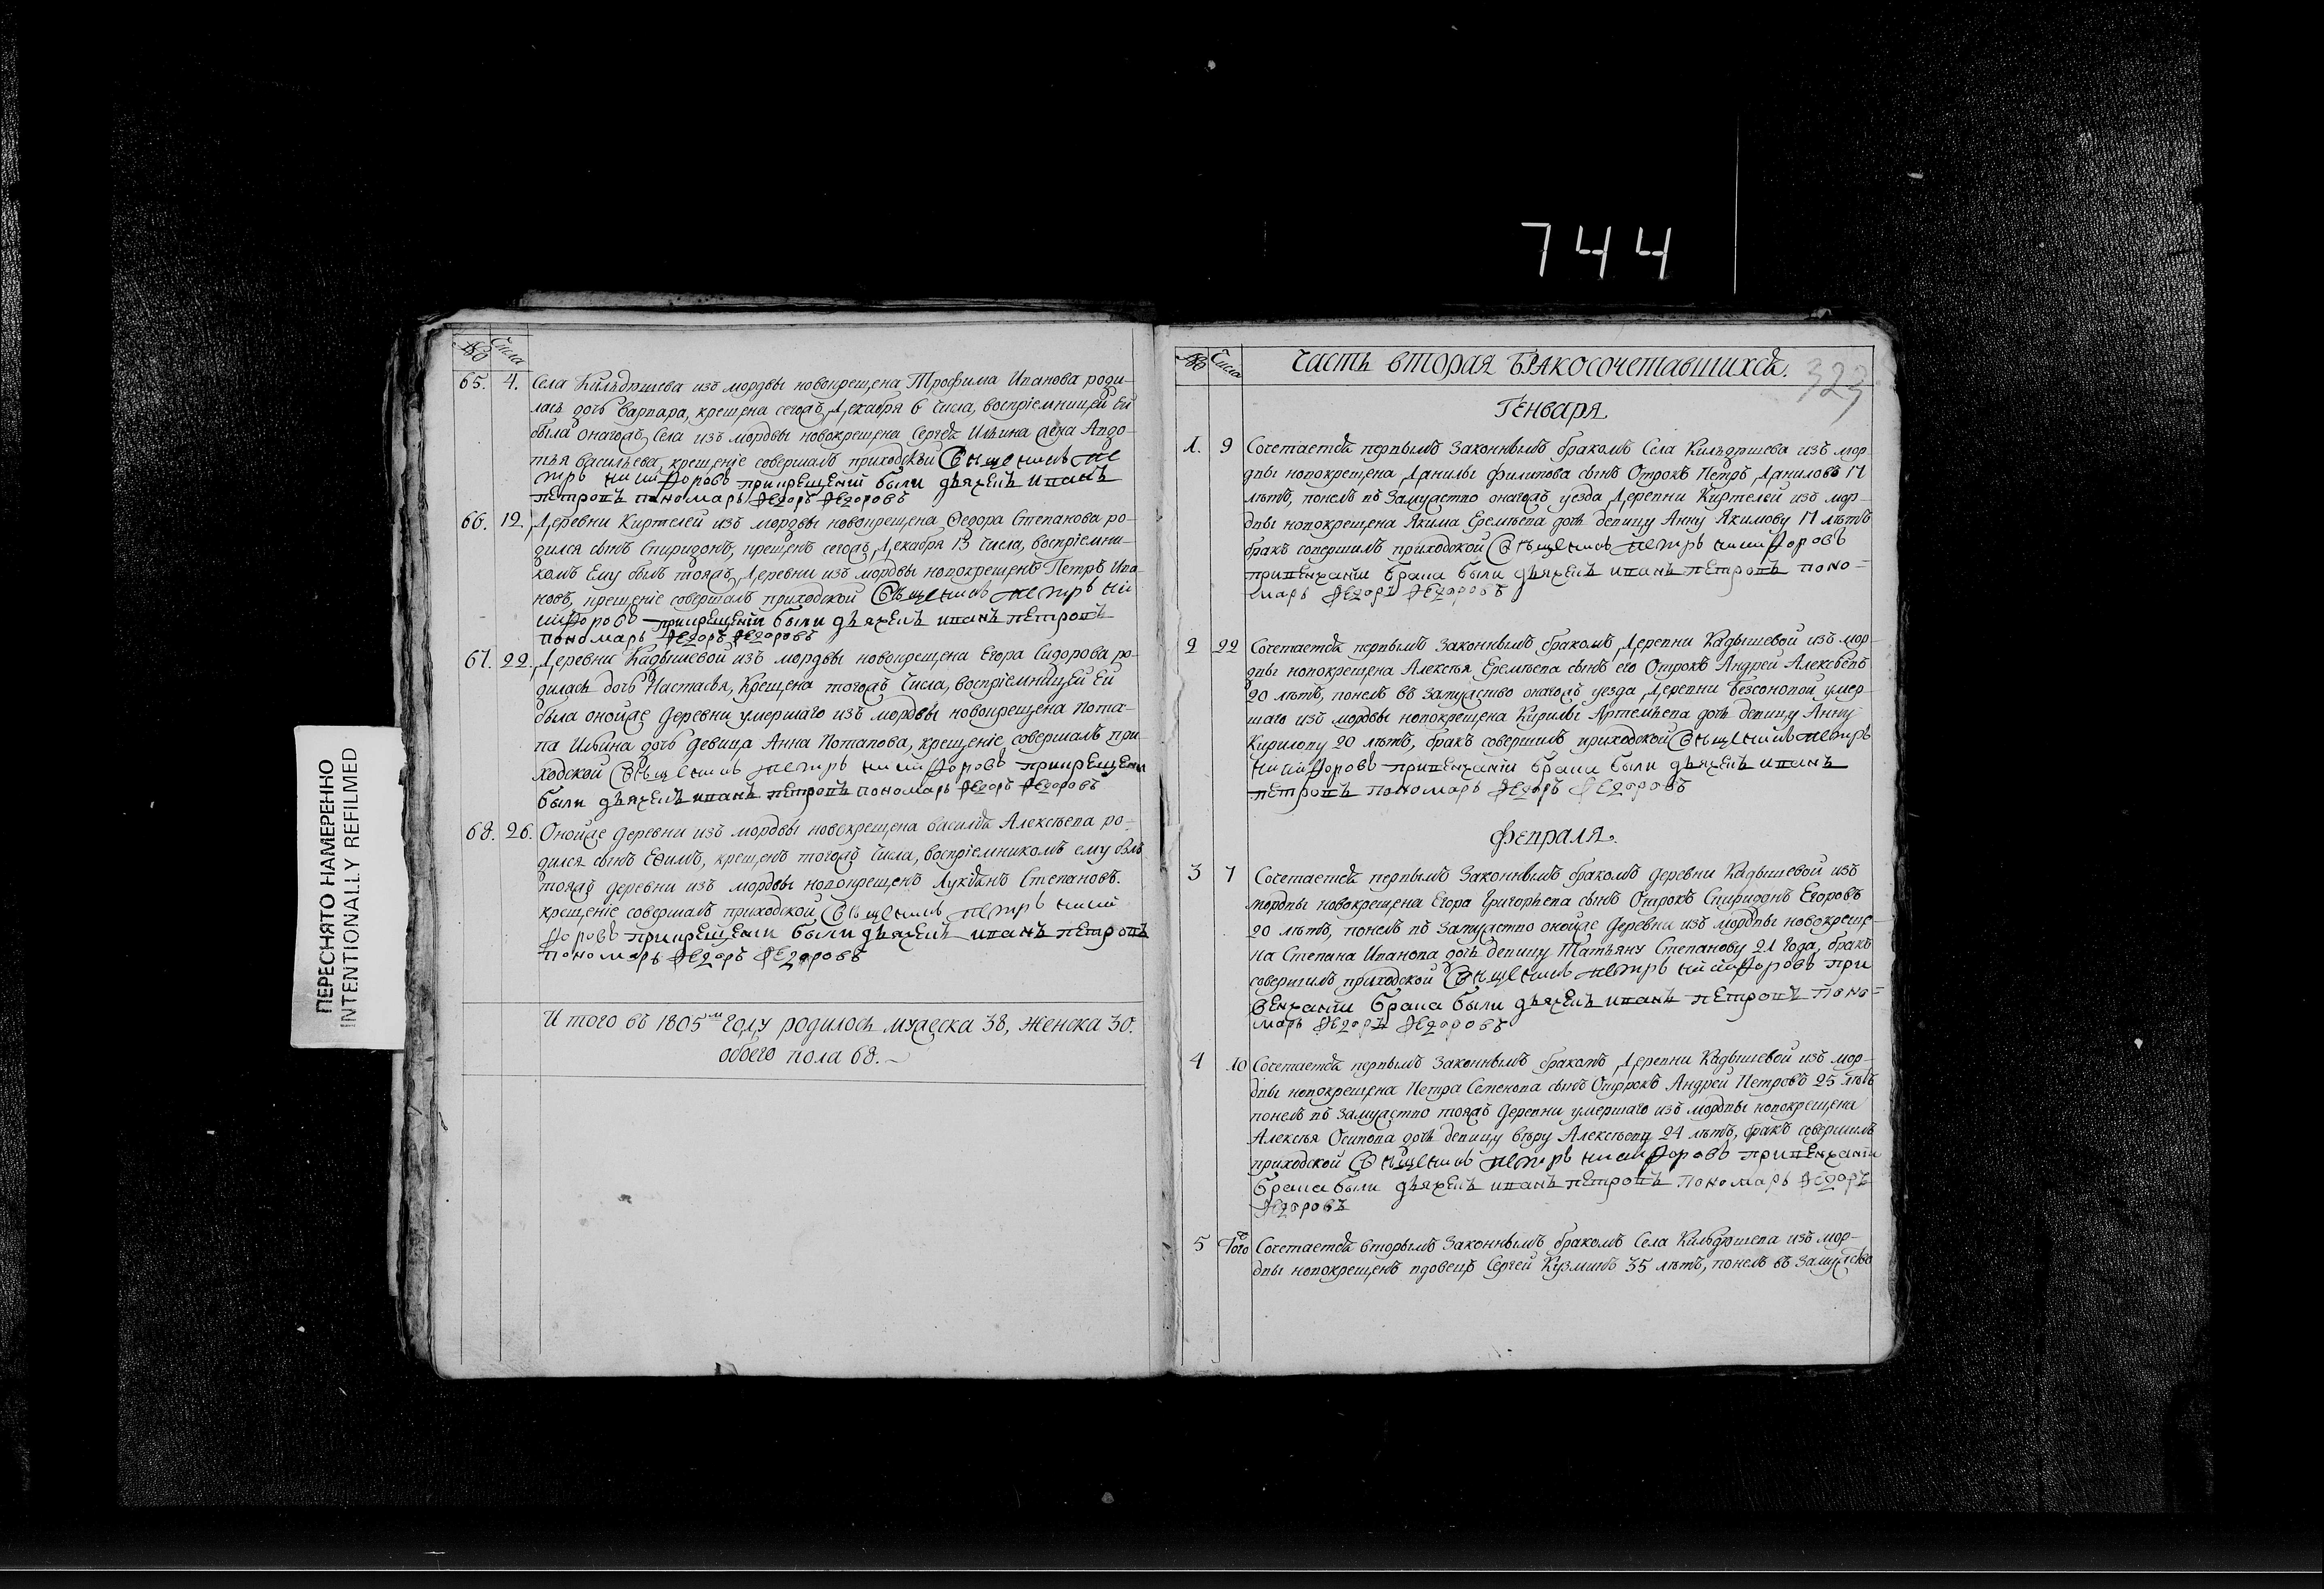 744
ПЕРЕСНЯТО НАМЕРЕННО
INTENTIONALLY REFILMED
№ Числа
65. 4. Села Кильдюшева изъ мордвы новокрещена Трофима Иванова роди-
лась дочь Варвара, крещена тогожъ Декабря 6 числа, воспріемницей ей
была оногожъ Села изъ мордвы новокрещена Сергея Ильина жена Авдо-
тья Васильева, крещеніе совершалъ приходской Священникъ Пе
тръ Никифоровъ прикрещеніи были дьячекъ Иванъ
Петровъ пономарь Федоръ Федоровъ
66. 12. Деревни Киртелей изъ мордвы новокрещена Федора Степанова ро-
дился сынъ Спиридонъ, крещенъ тогожъ Декабря 13 числа, воспріемни-
комъ Ему былъ тояжъ Деревни изъ мордвы новокрещенъ Петръ Ива
новъ, крещеніе совершалъ приходской Священникъ Петръ Ни
кифоровъ прикрещеніи были дьячекъ Иванъ Петровъ
пономарь Федоръ Федоровъ
67. 22. Деревни Кадышевой изъ мордвы новокрещена Егора Сидорова ро-
дилась дочь Настасья, Крещена тогожъ числа, воспріемницей Ей
была онойже деревни умершаго изъ мордвы новокрещена Пота-
па Ильина дочь девица Анна Потапова, крещеніе совершалъ при-
ходской Священникъ Петръ Никифоровъ прикрещени
были дьячекъ Иванъ Петровъ пономарь Федоръ Федоровъ
68. 26. Онойже деревни изъ мордвы новокрещена Василья Алексеева ро-
дился сынъ Ефимъ, крещенъ тогожъ числа, воспріемникомъ ему былъ
тояжъ деревни изъ мордвы новокрещенъ Лукьянъ Степановъ.
крещеніе совершалъ приходской Священникъ Петръ Ники
форовъ прикрещени были дьячекъ Иванъ Петровъ
пономарь Федоръ Федоровъ
И того въ 1805м году родилось мужеска 38, женска 30.
обоего пола 68.
№ Числа Часть вторая бракосочетавшихся. 323
Генваря
1. 9 Сочетается первымъ законнымъ бракомъ Села Кильдюшева изъ мор
двы новокрещена Данилы Филипова сынъ Отрокъ Петръ Даниловъ 17
лѣтъ, понелъ въ замужство оногожъ уезда Деревни Киртелей изъ мор-
двы новокрещена Якима Еремѣева дочь девицу Анну Якимову 17 лѣтъ
бракъ совершилъ приходской Священникъ Петръ Никифоровъ
привенчаніи брака были дьячекъ Иванъ Петровъ поно-
марь Федоръ Федоровъ
2 22 Сочетается первымъ законнымъ бракомъ Деревни Кадышевой изъ мор-
двы новокрещена Алексѣя Еремѣева сынъ его Отрокъ Андрей Алексѣевъ
20 лѣтъ, понелъ въ замужство оногожъ уезда Деревни Безсоновой умер-
шаго изъ мордвы новокрещена Кирилы Артемьева дочь девицу Анну
Кирилову 20 лѣтъ, бракъ совершилъ приходской Священникъ Петръ
Никифоровъ привенчаніи брака были дьячекъ Иванъ
Петровъ пономарь Федоръ Федоровъ
Февраля.
3 7 Сочетается первымъ законнымъ бракомъ деревни Кадышевой изъ
мордвы новокрещена Егора Григорьева сынъ Отрокъ Спиридонъ Егоровъ
20 лѣтъ, понелъ въ замужство онойже деревни изъ мордвы новокреще-
на Степана Иванова дочь девицу Татьяну Степанову 21 года, бракъ
совершилъ приходской Священникъ Петръ Никифоровъ при
венчаніи брака были дьячекъ Иванъ Петровъ поно-
марь Федоръ Федоровъ
4 10 Сочетается первымъ законнымъ бракомъ Деревни Кадышевой изъ мор-
двы новокрещена Петра Семенова сынъ Отрокъ Андрей Петровъ 25 лѣтъ
понелъ въ замужство тояжъ деревни умершаго изъ мордвы новокрещена
Алексѣя Осипова дочь девицу Вѣру Алексѣеву 24 лѣтъ, бракъ совершилъ
приходской Священникъ Петръ Никифоровъ привенчаніи
брака были дьячекъ Иванъ Петровъ пономарь Федоръ
Федоровъ
5 Того Сочетается вторымъ законнымъ бракомъ Села Кильдюшева изъ мор-
двы новокрещенъ вдовецъ Сергей Кузминъ 35 лѣтъ, понелъ въ замужство